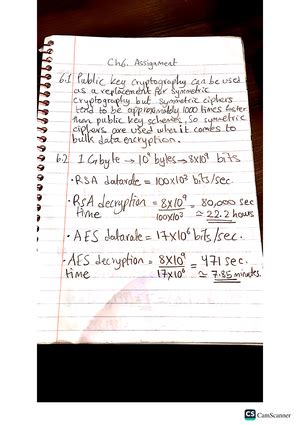 Ch6. Assignment
6.1 Public key cryptography can be used
as a replacement for symmetric
cryptography but symmetric ciphers
tend to be approximately 1000 times faster
than public key schemes, So symmetric
ciphers are used when it comes to
bulk data encryption.
6.2 1 Gbyte → 10⁹ bytes → 8x10⁹ bits
• RSA datarate = 100x10³ bits/sec.
• RSA decryption = 8x10⁹ = 80,000 sec
time 100x10³ ≅ 22.2 hours
• AES datarate = 17x10⁶ bits/sec.
• AES decryption = 8x10⁹ = 471 sec.
time 17x10⁶ ≅ 7.85 minutes.
CS CamScanner